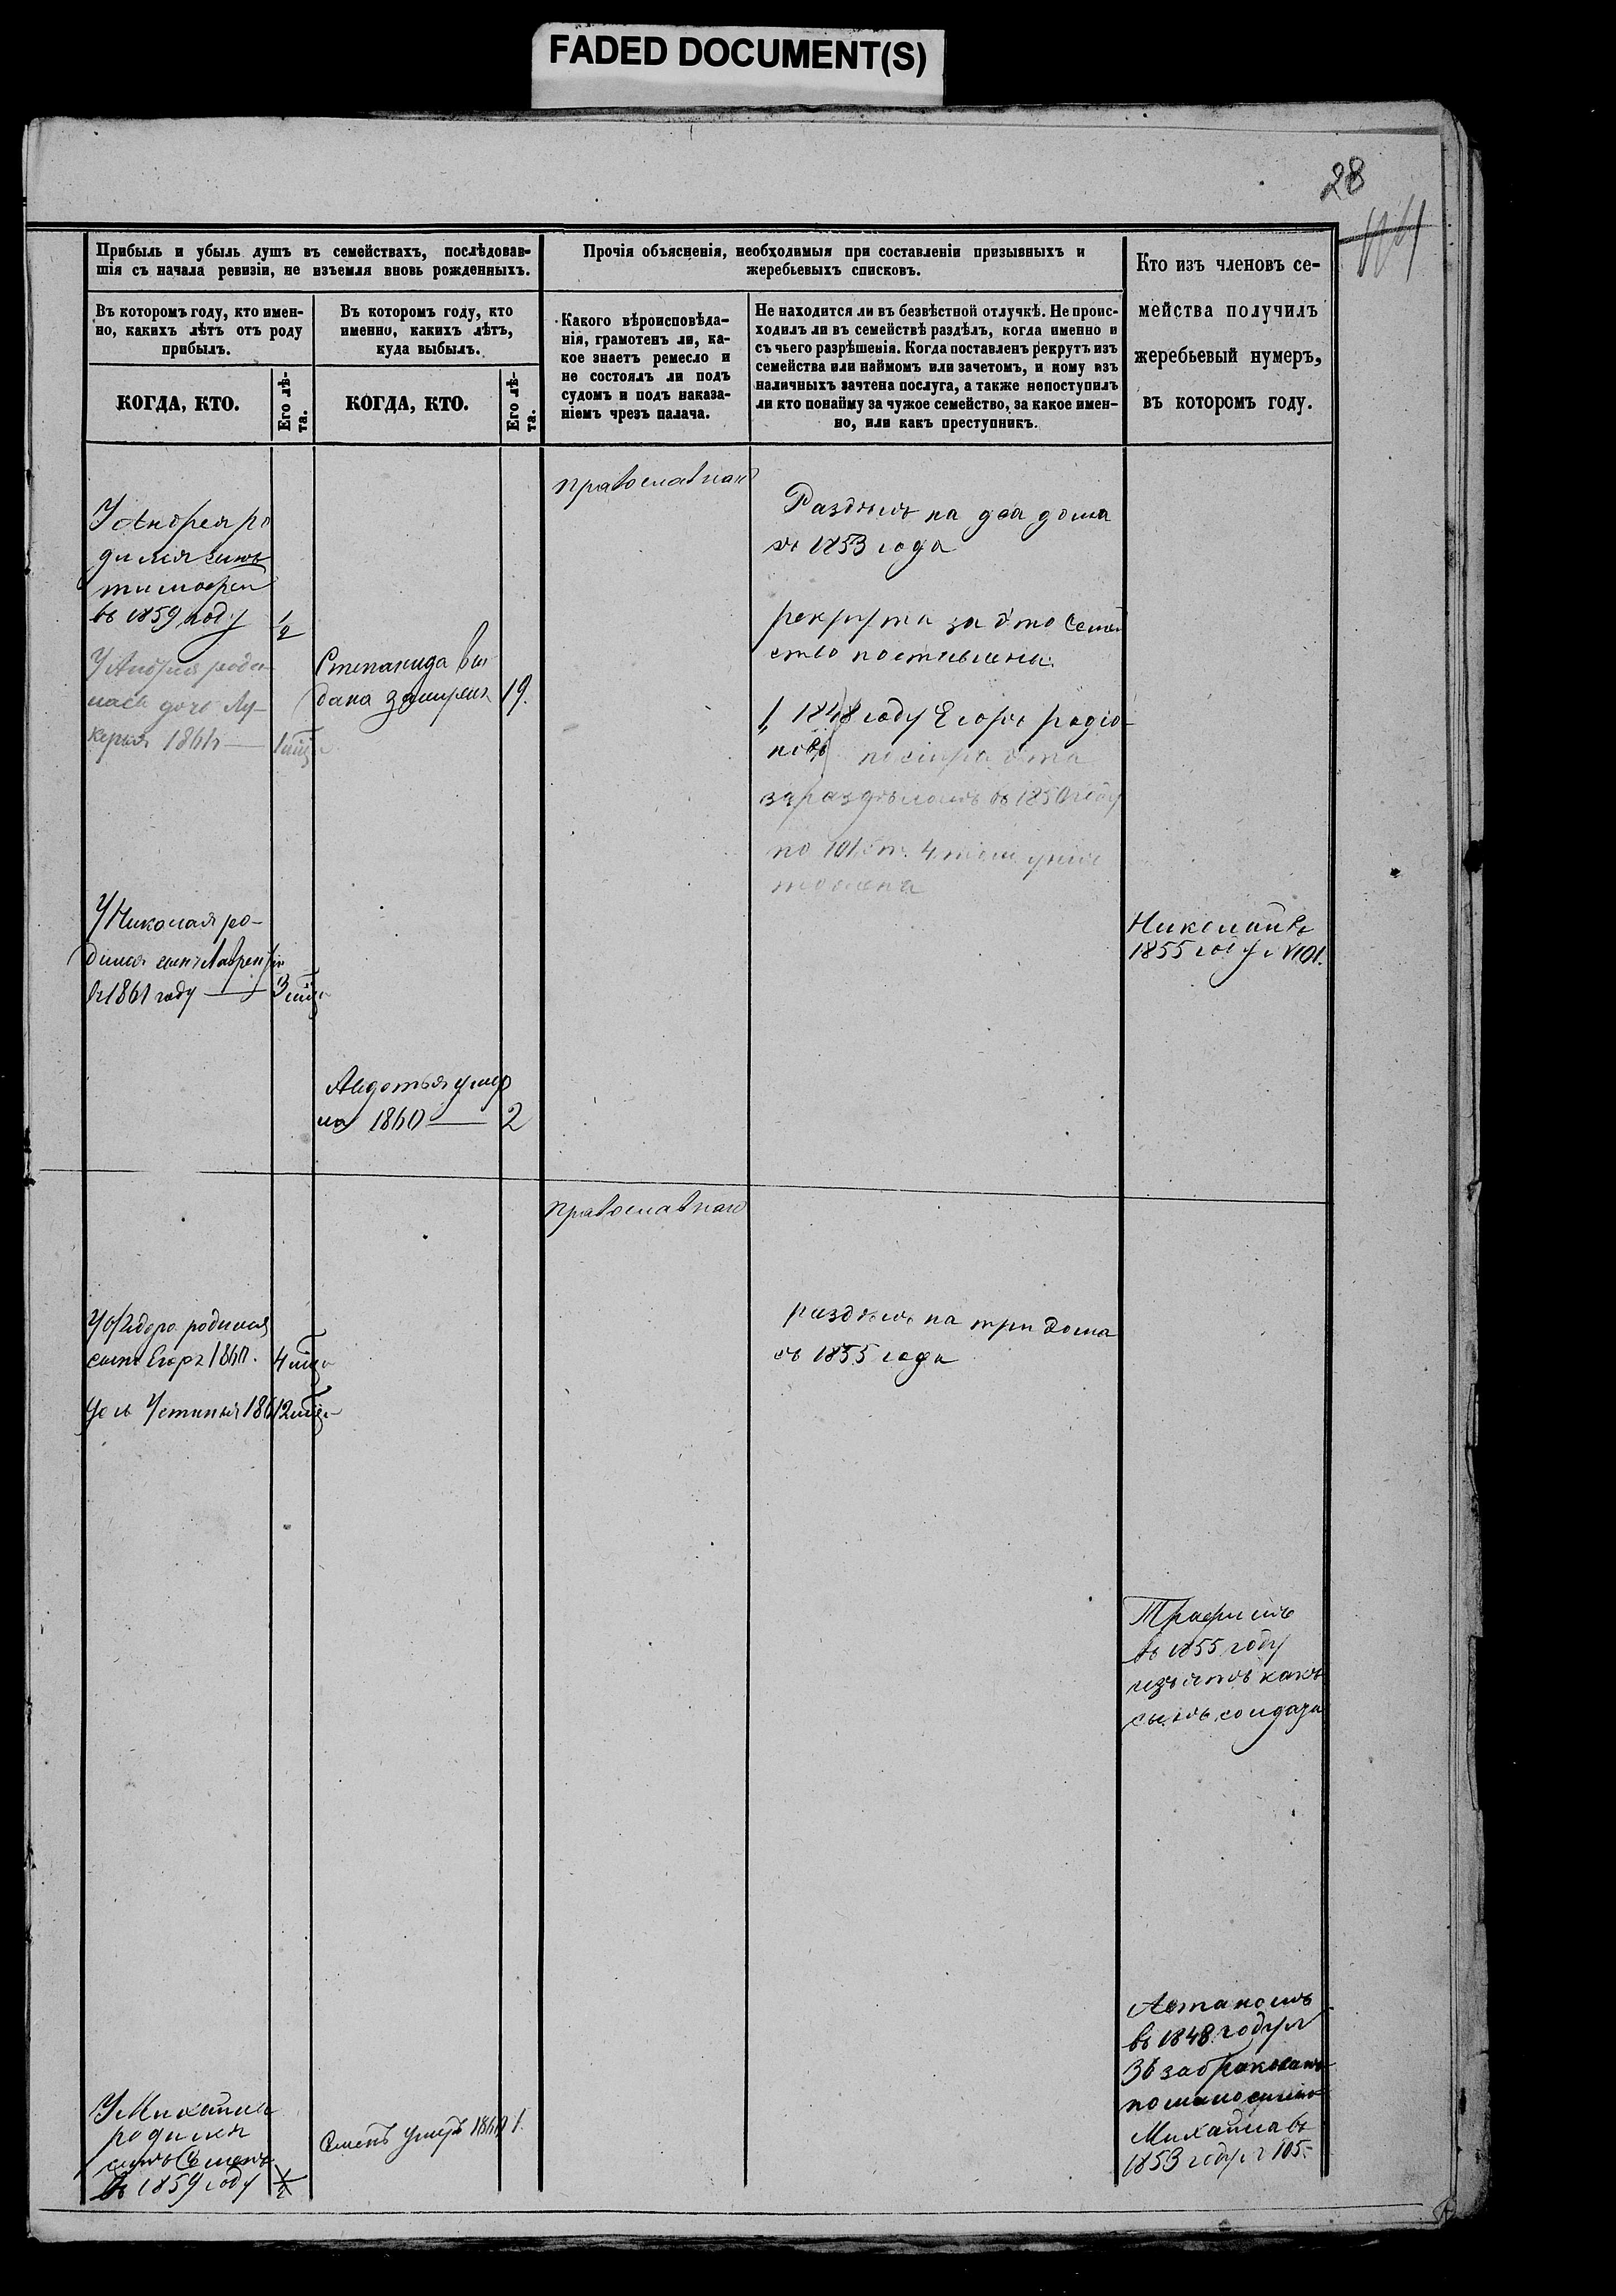 FADED DOCUMENT(S)
28
Прибыль и убыль душъ въ семействахъ, послѣдовав-
шія съ начала ревизіи, не изъемля вновь рожденныхъ.
Прочія объясненія, необходимыя при составленіи призывныхъ и
жеребьевыхъ списковъ.
Кто изъ членовъ се-
мейства получилъ
жеребьевый нумеръ,
въ которомъ году.
Въ которомъ году, кто имен-
но, какихъ лѣтъ отъ роду
прибылъ.
Въ которомъ году, кто
именно, какихъ лѣтъ,
куда выбылъ.
Какого вѣроисповѣда-
нія, грамотенъ ли, ка-
кое знаетъ ремесло и
не состоялъ ли подъ
судомъ и подъ наказа-
ніемъ чрезъ палача.
Не находится ли въ безвѣстной отлучкѣ. Не проис-
ходилъ ли въ семействѣ раздѣлъ, когда именно и
съ чьего разрѣшенія. Когда поставленъ рекрутъ изъ
семейства или наймомъ или зачетомъ, и кому изъ
наличныхъ зачтена послуга, а также непоступилъ
ли кто понайму за чужое семейство, за какое имен-
но, или какъ преступникъ.
КОГДА, КТО.
Его лѣ-
та.
КОГДА, КТО.
Его лѣ-
та.
православнаго
У Андрея ро
дился сынъ
тимофей
въ 1859 году 1/2
У Андрея роди
лась дочь Лу-
керья 1861
Степанида вы
дана замужъ 19.
Раздѣлъ на два дома
съ 1853 года
рекрута за это семей
ство поставлены:
1, 1848 году Егоръ родіо
новъ
зараздѣломъ въ 1850 году
по 101 ст. 4
У Николая ро-
дился сынъ Лаврентій
въ 1861 году 3
Николай въ
1855 году № 101.
Авдотья умер
ла 1860 2
православнаго
родился
сынъ Егоръ 1860. 4
дочь Устинья 1861 2
раздѣлъ на три дома
съ 1855 года
Трафимъ
въ 1855 году
изъятъ какъ
сынъ солдата
Автаномъ
въ 1848 году №
36 забракованъ
Михайла въ
1853 году № 105.
У Михайла
родился
сынъ Семенъ
въ 1859 году 1/2
Семенъ умеръ 1860 1.